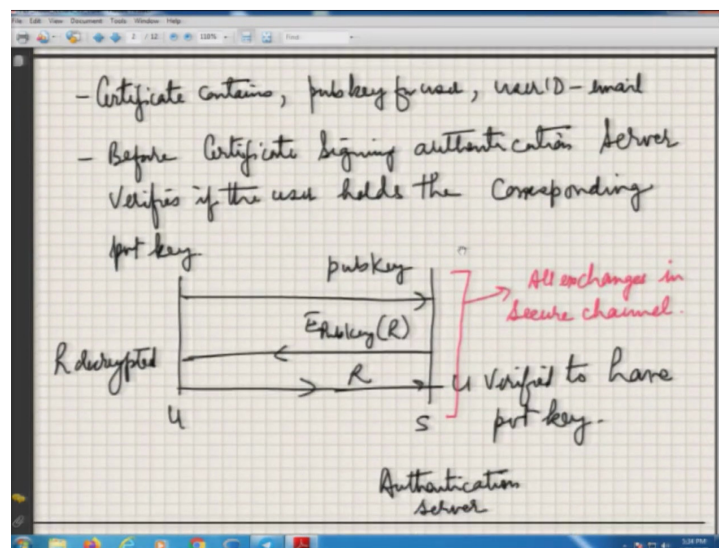 File Edit View Document Tools Window Help
2 / 12 110% Find
- Certificate contains, pubkey for used, userID - email
- Before Certificate Signing authentication Server
Verifies if the user holds the Corresponding
pvt key.
pubkey
All exchanges in
Secure channel.
E Pubkey (R)
R decrypted
R
U Verified to have
pvt key.
U
S
Authentication
server
5:34 PM